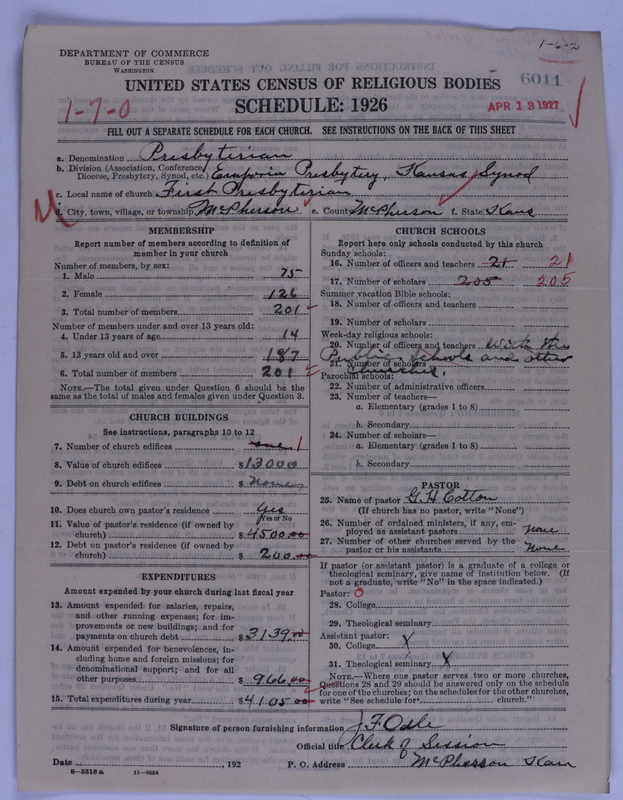 1-6-2
DEPARTMENT OF COMMERCE
BUREAU OF THE CENSUS
WASHINGTON
6011
UNITED STATES CENSUS OF RELIGIOUS BODIES
1-7-0
SCHEDULE: 1926
APR 18 1927
FILL OUT A SEPARATE SCHEDULE FOR EACH CHURCH. SEE INSTRUCTIONS ON THE BACK OF THIS SHEET
a. Denomination Presbyterian
b. Division (Association, Conference, Diocese, Presbytery, Synod, etc.) Emporia Presbytery, Kansas Synod
c. Local name of church First Presbyterian
d. City, town, village, or township McPherson e. County McPherson f. State Kans
MEMBERSHIP
Report number of members according to definition of
member in your church
Number of members, by sex:
1. Male 75
2. Female 126
3. Total number of members 201
Number of members under and over 13 years old:
4. Under 13 years of age 14
5. 13 years old and over 187
6. Total number of members 201
NOTE.—The total given under Question 6 should be
same as the total of males and females given under Question 3.
CHURCH BUILDINGS
See instructions, paragraphs 10 to 12
7. Number of church edifices one 1
8. Value of church edifices $ 13000
9. Debt on church edifices $ None
10. Does church own pastor's residence Yes
(Yes or No)
11. Value of pastor's residence (if owned by
church) $ 4500.00
12. Debt on pastor's residence (if owned by
church) $ 200.00
EXPENDITURES
Amount expended by your church during last fiscal year
13. Amount expended for salaries, repairs,
and other running expenses; for im-
provements or new buildings; and for
payments on church debt $ 3139.00
14. Amount expended for benevolences, in-
cluding home and foreign missions; for
denominational support; and for all
other purposes $ 966.00
15. Total expenditures during year $ 4105.00
CHURCH SCHOOLS
Report here only schools conducted by this church
Sunday schools:
16. Number of officers and teachers 21 21
17. Number of scholars 205 205
Summer vacation Bible schools:
18. Number of officers and teachers
19. Number of scholars
Week-day religious schools:
20. Number of officers and teachers With the
Public Schools and other
21. Number of scholars
churches.
Parochial schools:
22. Number of administrative officers
23. Number of teachers—
a. Elementary (grades 1 to 8)
b. Secondary
24. Number of scholars—
a. Elementary (grades 1 to 8)
b. Secondary
PASTOR
25. Name of pastor G. H. Cotton
(If church has no pastor, write "None")
26. Number of ordained ministers, if any, em-
ployed as assistant pastors none
27. Number of other churches served by the
pastor or his assistants None
If pastor (or assistant pastor) is a graduate of a college or
theological seminary, give name of institution below. (If
not a graduate, write "No" in the space indicated.)
Pastor: 0
28. College
29. Theological seminary
Assistant pastor:
30. College X
31. Theological seminary X
NOTE.—Where one pastor serves two or more churches,
Questions 28 and 29 should be answered only on the schedule
for one of the churches; on the schedules for the other churches,
write "See schedule for church."
Signature of person furnishing information J. F. Odle
Official title Clerk of Session
Date , 192 P. O. Address McPherson Kan
8-5518a 11-9054